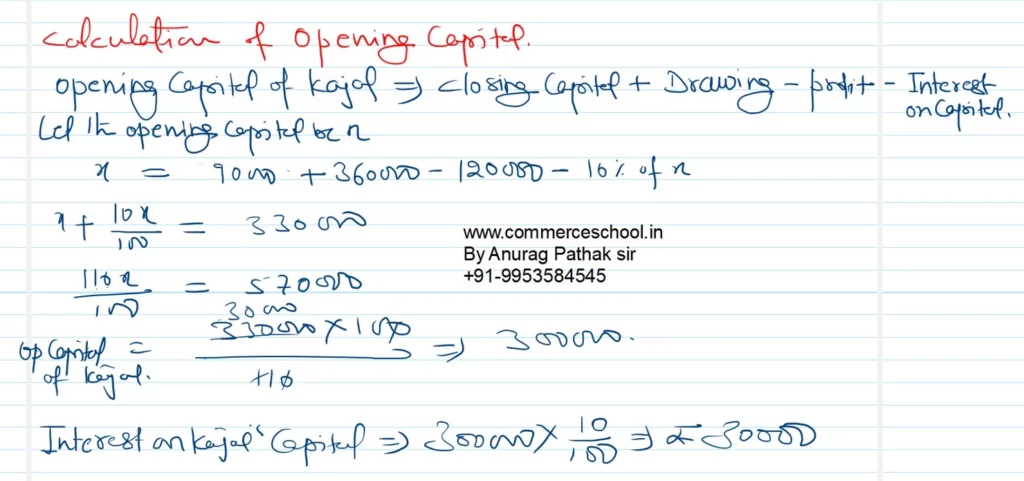 Calculation of Opening Capital.
Opening Capital of Kajal ⇒ Closing Capital + Drawing - profit - Interest on Capital.
Let the opening Capital be x
x = 90000 + 360000 - 120000 - 10% of x
x + 10x/100 = 330000
110x/100 = 570000
30000
Op Capital of Kajal. = 330000 × 100 / 110 ⇒ 300000.
Interest on Kajal's Capital ⇒ 300000 × 10/100 ⇒ ₹ 30000
www.commerceschool.in
By Anurag Pathak sir
+91-9953584545